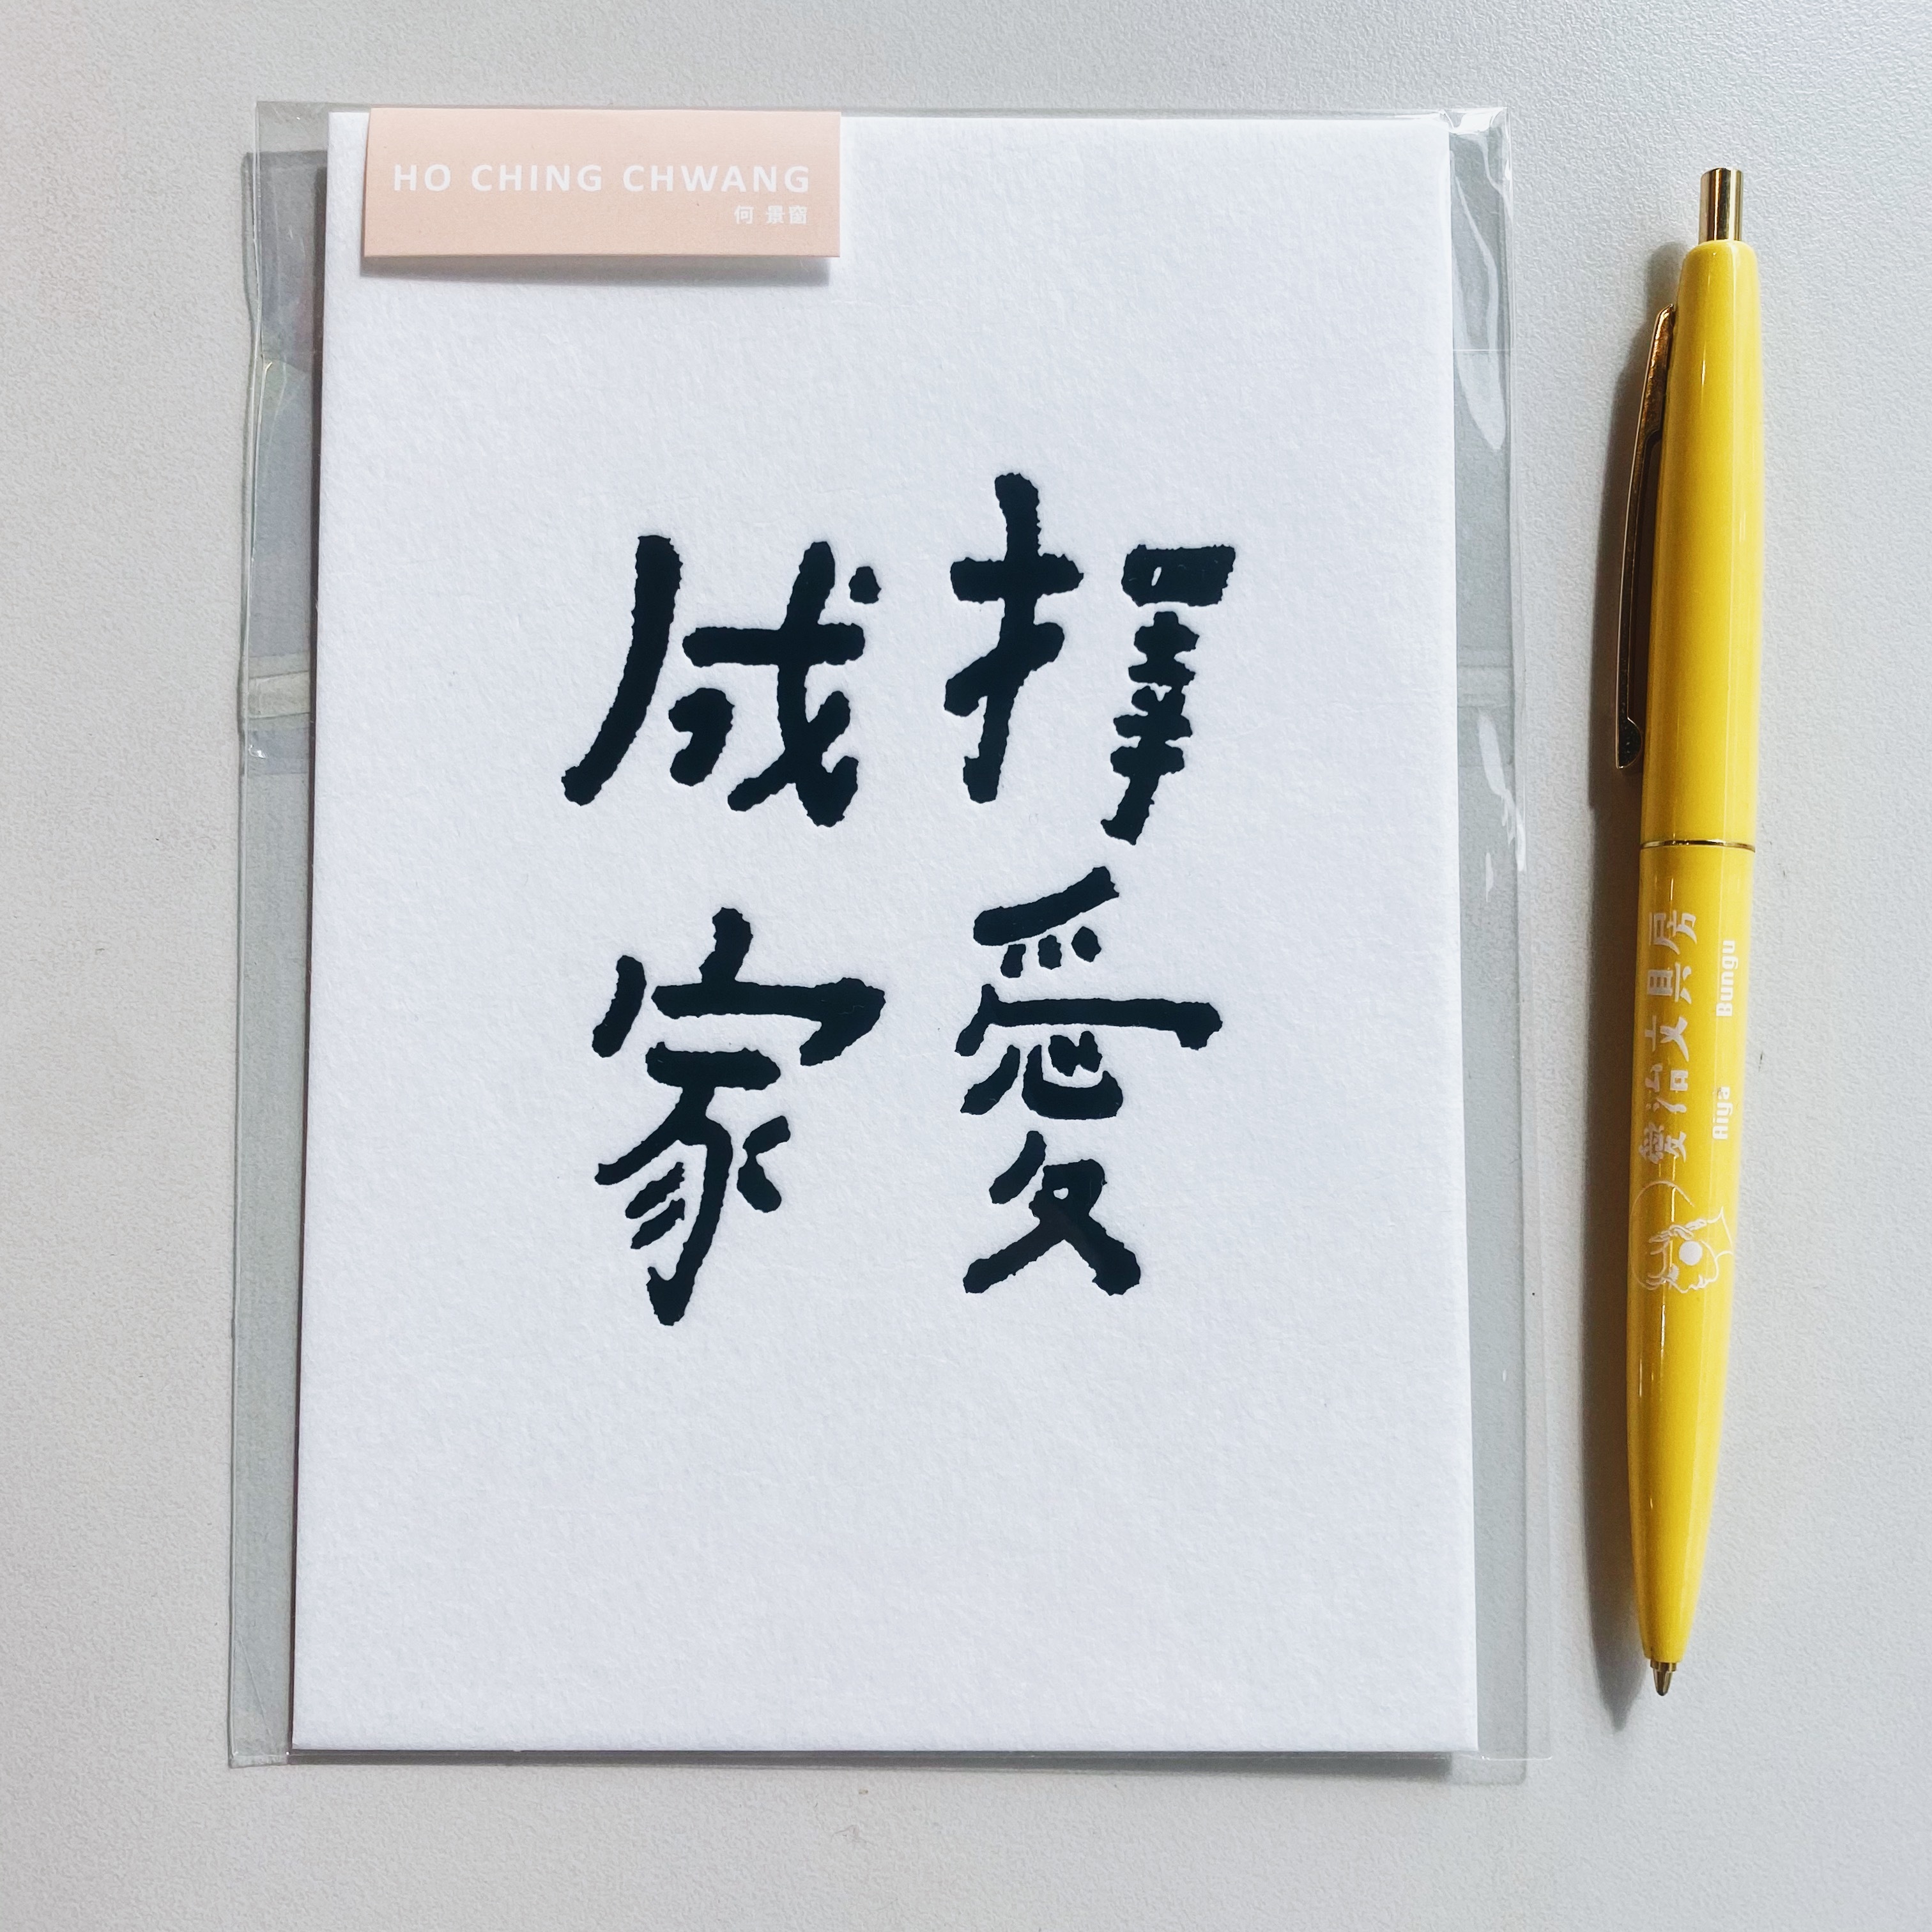 HO CHING CHWANG
何 景窗
擇愛
成家
愛治文具房
Aiya Bungu